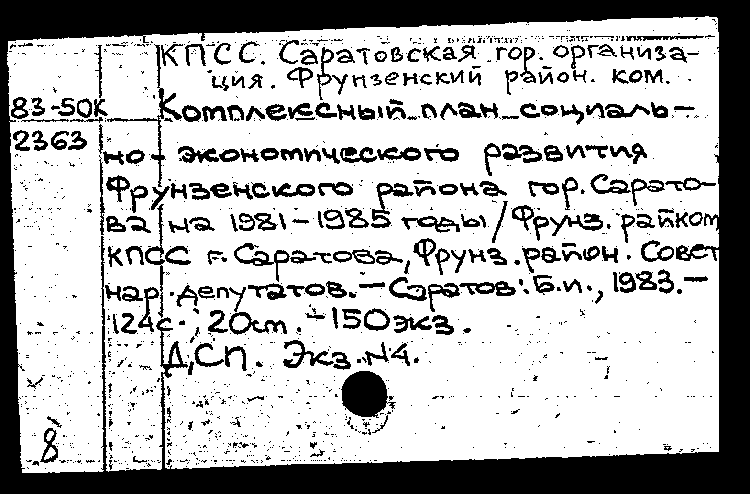 КПСС. Саратовская гор. организа-
ция. Фрунзенский район. ком.
83-50К Комплексный план социаль-
2363
но-экономического развития
Фрунзенского района гор. Сарато-
ва на 1981-1985 годы / Фрунз. райком
КПСС г. Саратова, Фрунз. район. Совет
нар. депутатов. — Саратов: Б.и., 1983. —
124с.; 20см. - 150экз.
ДСП. Экз. N4.
8